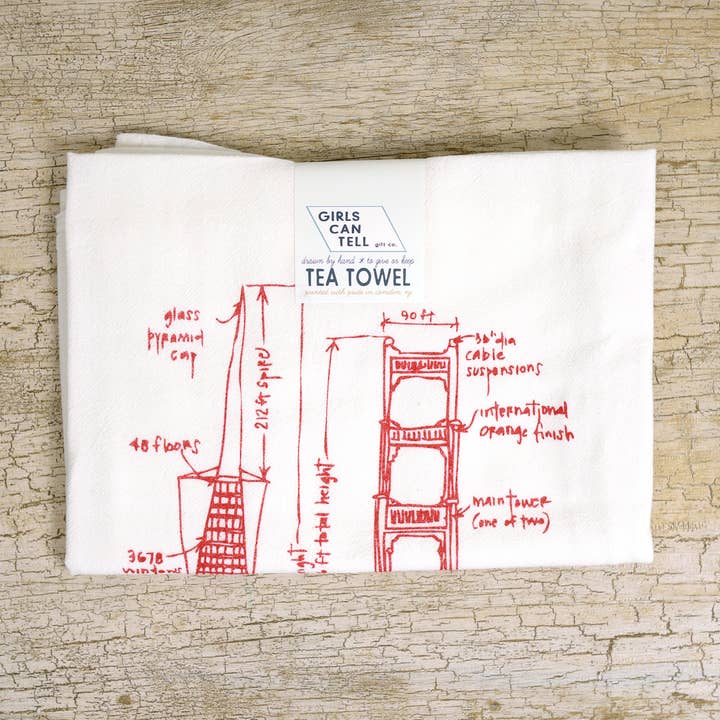 GIRLS
CAN
TELL gift co.
drawn by hand * to give or keep
TEA TOWEL
printed with pride in camden, nj
glass
pyramid
cap
212 ft spire
48 floors
3678
windows
ft total height
90 ft
36" dia
cable
suspensions
international
orange finish
main tower
(one of two)